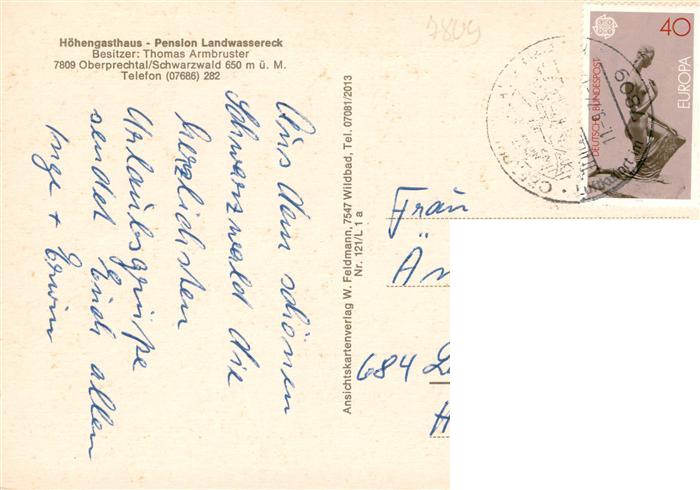 7809
Höhengasthaus - Pension Landwassereck
Besitzer: Thomas Armbruster
7809 Oberprechtal/Schwarzwald 650 m ü. M.
Telefon (07686) 282
Aus dem schönen
Schwarzwald die
herzlichsten
Urlaubsgrüße
sendet Euch allen
Inge + Erwin
Ansichtskartenverlag W. Feldmann, 7547 Wildbad, Tel. 07081/2013
Nr. 121/L 1 a
40
EUROPA
DEUTSCHE BUNDESPOST
7809
Frau
Än
684 La
H